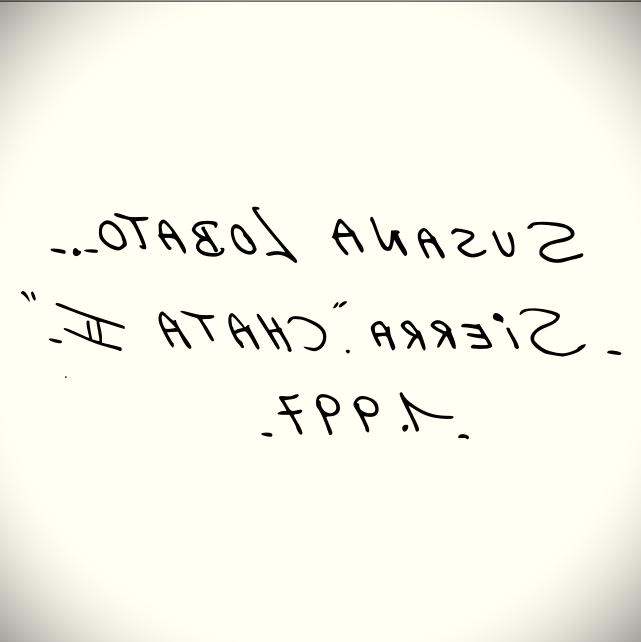 SUSANA LOBATO...
- SiERRA "CHATA II" -
- 1.997 -